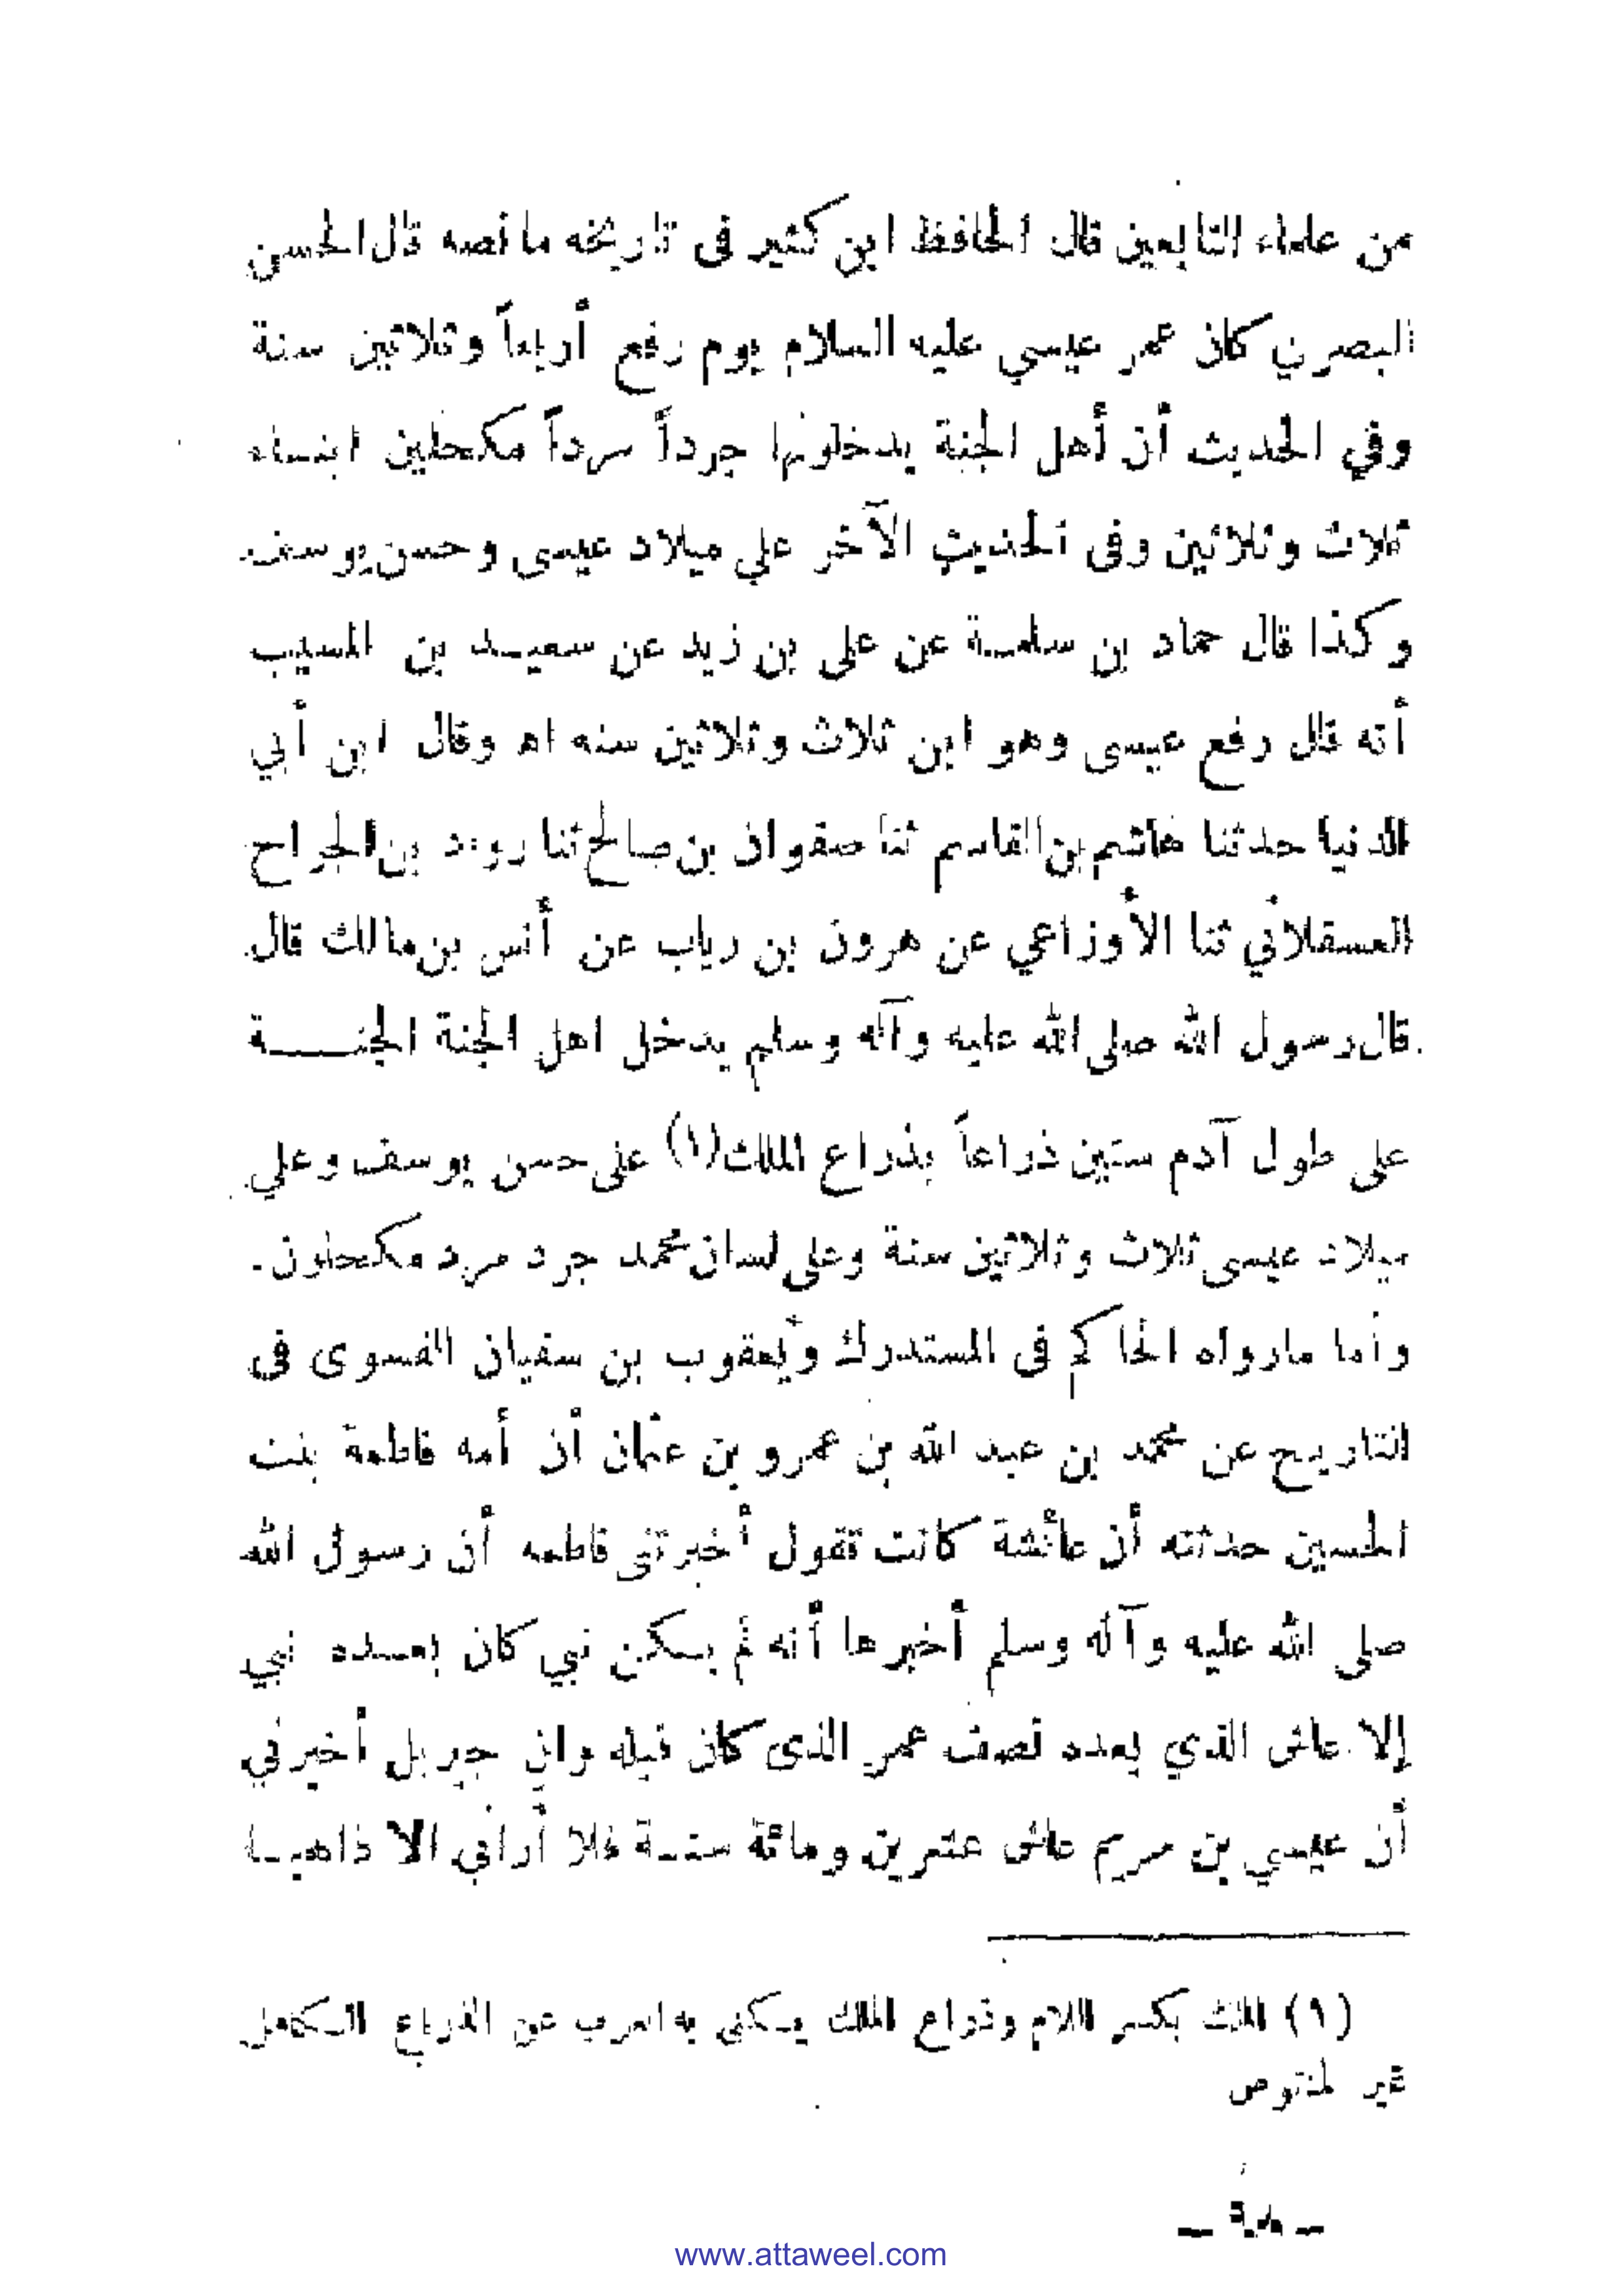 من علماء التابعين قال الحافظ ابن كثير فى تاريخه مانصه قال الحسن
البصري كان عمر عيسي عليه السلام يوم رفع أربعاً وثلاثين سنة
وفي الحديث أن أهل الجنة يدخلونها جرداً مرداً مكحلين ابنـاء
ثلاث وثلاثين وفى الحديث الآخر علي ميلاد عيسى وحسن يوسف
وكذا قال حماد بن سلمـة عن على بن زيد عن سعيـد بن المسيب
أنه قال رفع عيسى وهو ابن ثلاث وثلاثين سنه اه وقال ابن أبي
الدنيا حدثنا هاشم بن القاسم ثنا صفوان بن صالح ثنا رواد بن الجراح
العسقلاني ثنا الأوزاعي عن هرون بن رياب عن أنس بن مالك قال
قال رسول الله صلى الله عليه وآله وسلم يدخل اهل الجنة الجنـــة
على طول آدم ستين ذراعاً بذراع الملك (١) على حسن يوسف وعلي
ميلاد عيسى ثلاث وثلاثين سنة وعلى لسان محمد جرد مرد مكحلون.
وأما مارواه الحاكم فى المستدرك ويعقوب بن سفيان الفسوى فى
التاريـخ عن محمد بن عبد الله بن عمرو بن عثمان أن أمه فاطمة بنت
الحسين حدثته أن عائشة كانت تقول أخبرتنى فاطمه أن رسول الله
صلى الله عليه وآله وسلم أخبرها أنه لم يـكن نبي كان بعـده نبي
إلا عاش الذي بعده نصف عمر الذى كان قبله وان جبريل أخبرني
أن عيسي بن مريم عاش عشرين ومائة سنـة فلا أراني الا ذاهبـا
(١) الملك بكسر اللام وذراع الملك يـكنى به العرب عن الذراع الـكامل
غير المنقوص
www.attaweel.com